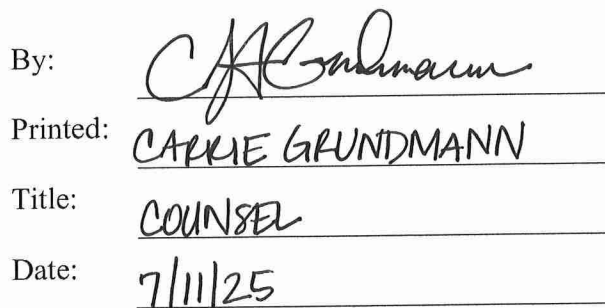 By: CA Grundmann
Printed: CARRIE GRUNDMANN
Title: COUNSEL
Date: 7/11/25